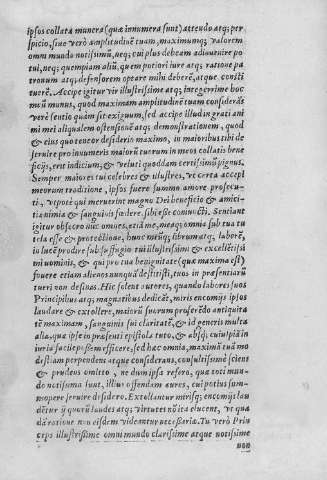 ipsos collata munera (quæ innumera sunt) attendo atq; per
spicio, siue verò amplitudinē tuam, maximumq; valorem
omni mundo notissimū, neq; cui plus debeam adinuenire po
tui, neq; quempiam aliū, quem potiori iure atq; ratione pa
tronum atq; defensorem optare mihi deberē, atque consti
tuerē. Accipe igitur vir illustrissime atq; integerrime hoc
meū munus, quod maximam amplitudinē tuam considerās
verè sentio quàm sit exiguum, sed accipe illud in grati ani
mi mei aliqualem ostensionē atq; demonstrationem, quod
& eius quo teneor desiderio maximo, in maioribus tibi de
seruire pro innumeris maiorū tuorum in meos collatis bene
ficijs, erit indicium, & veluti quoddam certissimū pignus.
Semper maiores tui celebres & illustres, vt certa accepi
meorum traditione, ipsos fuere summo amore prosecu-
ti, vt potè qui meruerint magno Dei beneficio & amici-
tia nimia & sanguinis fœdere sibi esse coniuncti. Sentiant
igitur obsecro hæc omnes, etiā me, meaq; omnia sub tua tu
tela esse & protectione, hunc meūq; librum atq; laborē,
in lucē prodire sub suffragio tui illustrissimi & excellētissi
mi nominis, & qui pro tua benignitate (quæ maxima est)
fouere etiam alienos nunquā destitisti, tuos in præsentiarū
tueri non desinas. Hic solent autores, quando labores suos
Principibus atq; magnatibus dedicāt, miris encomijs ipsos
laudare & extollere, maiorū suorum proferēdo antiquita
tē maximam, sanguinis sui claritatē, & id generis multa
alia, quæ ipse in præsenti epistola tuto, & absq; cuiuspiā in
iuria facile possem efficere, sed hæc omnia, maximā tuā mo
destiam perpendens atque considerans, consultissimè sciens
& prudens omitto, ne dum ipsa refero, quæ toti mun-
do notissima sunt, illius offendam aures, cui potius sum-
mopere seruire desidero. Extollantur mirisq; encomijs lau
dētur ij quorū laudes atq; virtutes nō ita elucent, vt qua
dā ratione non eisdem videantur necessaria. Tu verò Prin
ceps illustrissime omni mundo clarissime atque notissime
non